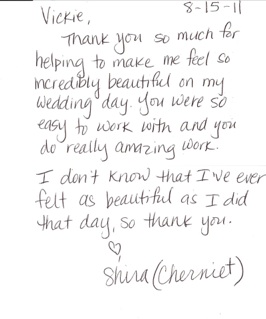 8-15-11
Vickie,
Thank you so much for
helping to make me feel so
incredibly beautiful on my
wedding day. You were so
easy to work with and you
do really amazing work.
I don't know that I've ever
felt as beautiful as I did
that day, so thank you.
♡
Shira (Cherniet)